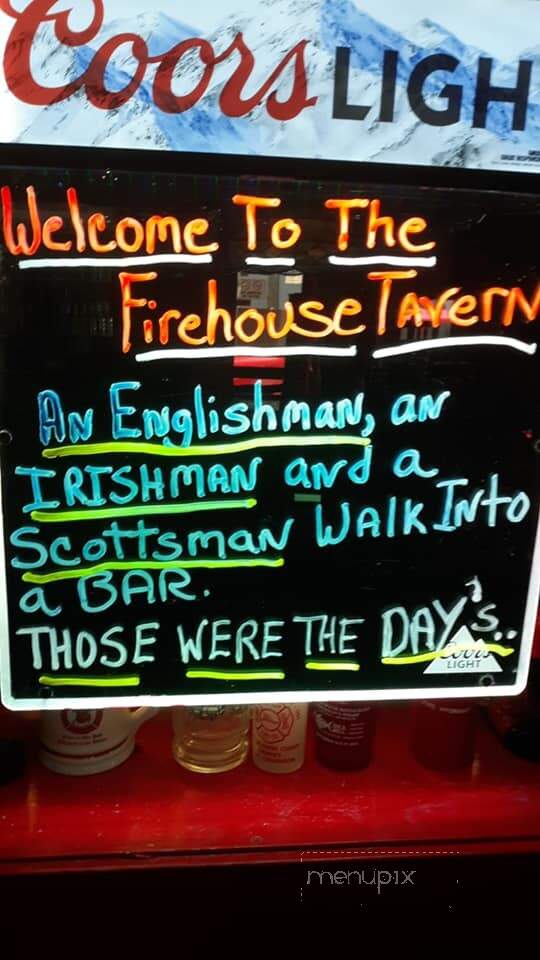 Coors LIGH
Welcome To The
Firehouse TAverN
AN Englishman, an
IRISHMAN and a
Scottsman WALK INto
a BAR.
THOSE WERE THE DAY's..
Coors
LIGHT
menupix